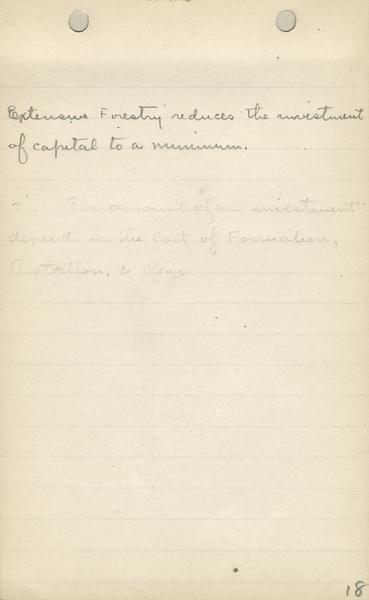 Extensive Forestry reduces the investment
of capital to a minimum.
The amount of an investment
depends on the Cost of Formation,
Protection, &
18